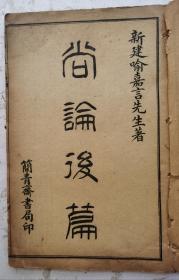 新建喻嘉言先生著
尚論後篇
簡青齋書局印